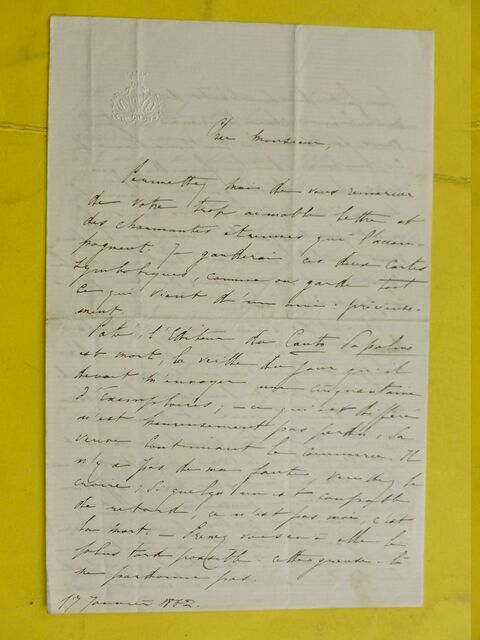 Cher monsieur,
Permettez moi de vous remercier
de votre trop aimable lettre et
des charmantes étrennes qui l'accom-
pagnent. Je garderai ces deux cartes
symboliques, comme on garde tout
ce qui vient d'un ami : précieuse-
ment.
l'Editeur du
est mort, la veille du jour qu'il
devait m'envoyer une cinquantaine
d'Exemplaires; — ce qui est différé
n'est heureusement pas perdu, sa
veuve continuant le commerce. Il
n'y a pas de ma faute, veuillez le
croire; Si quelqu'un est coupable
de retard, ce n'est pas moi, c'est
la mort. — Prenez vous en à elle le
plus tard possible. cette gueuse-là
ne pardonne pas.
17 Janvier